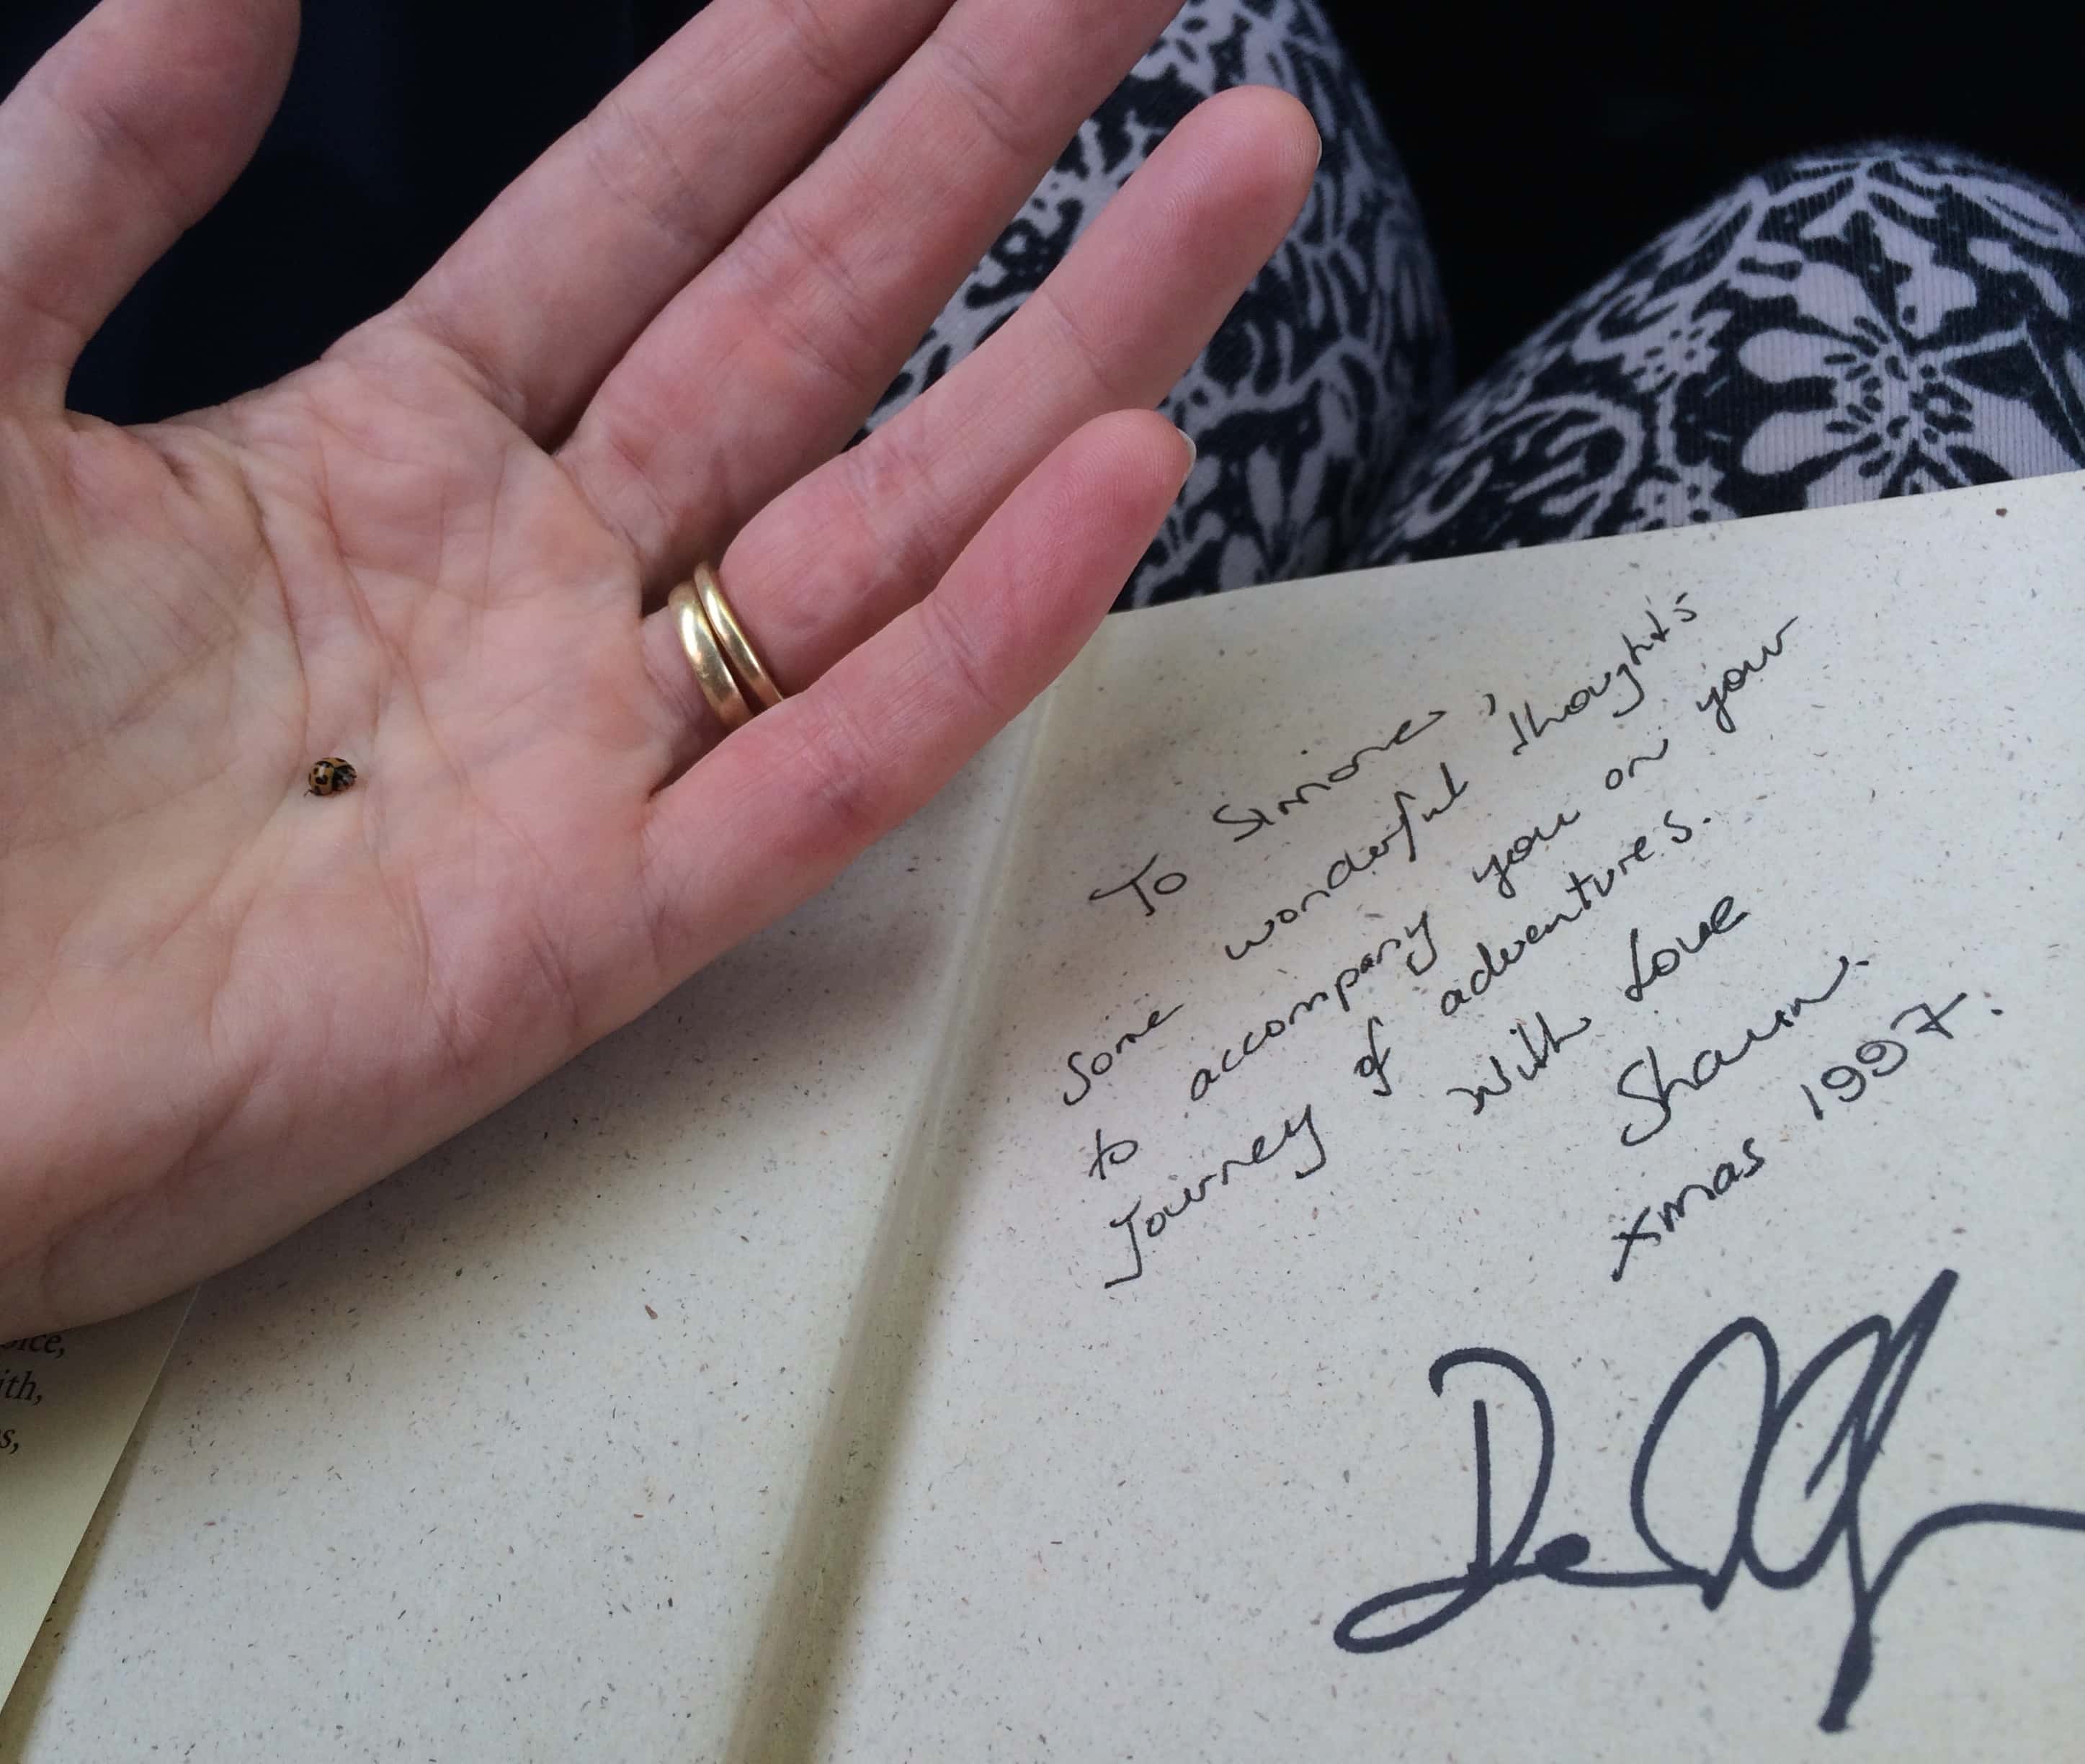 oice,
ith,
s,
To Simone,
Some wonderful 'thoughts'
to accompany you on your
Journey of adventures.
With Love
Shaun.
Xmas 1997.